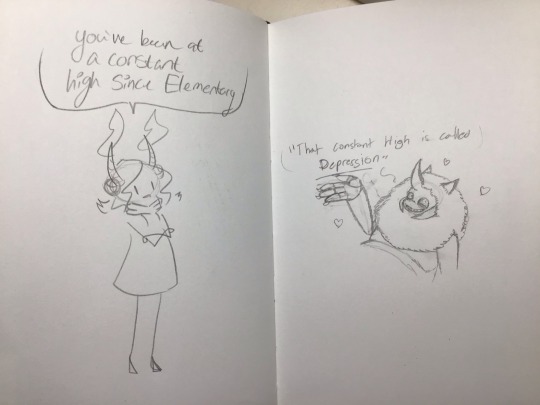 you've been at
a constant
high since Elementary
("That constant High is called)
Depression"